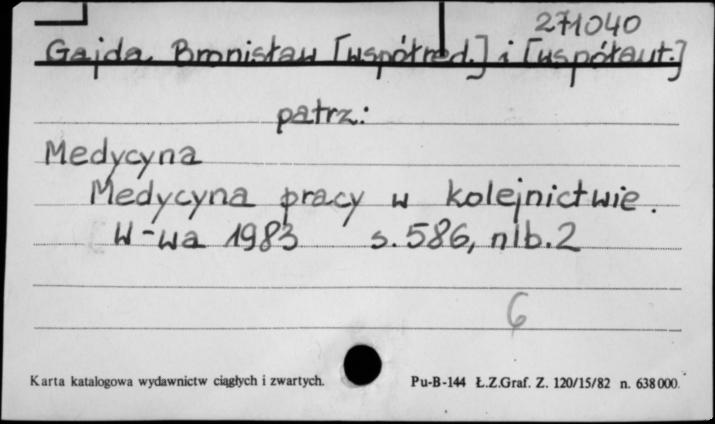 271040
Gajda, Bronisław [współred.] i [współaut.]
patrz:
Medycyna
Medycyna pracy w kolejnictwie.
W-wa 1983 s. 586, nlb. 2
6
Karta katalogowa wydawnictw ciągłych i zwartych. Pu-B-144 Ł.Z.Graf. Z. 120/15/82 n. 638000.